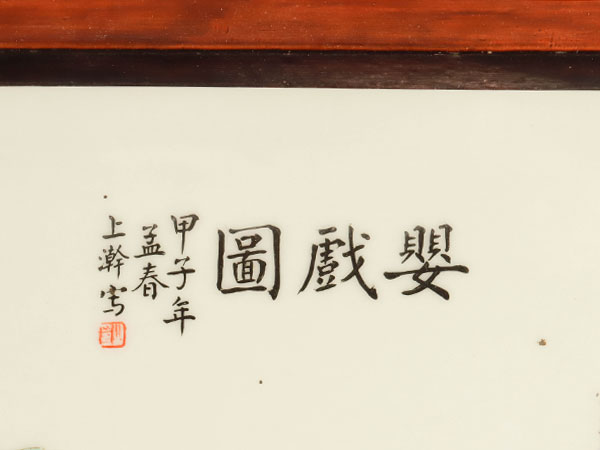 嬰戲圖
甲子年
孟春
上澣寫